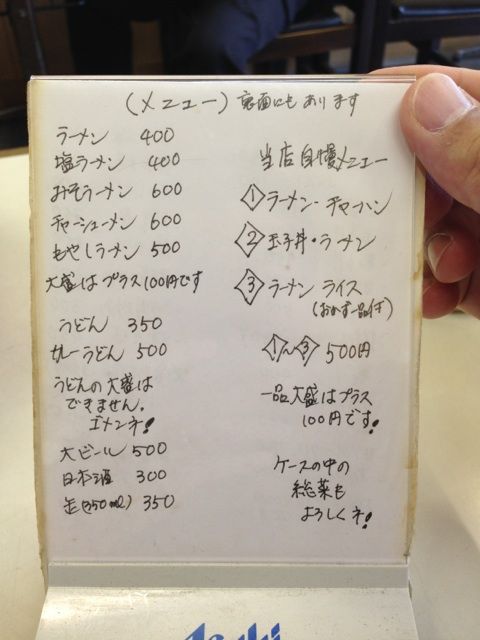 (メニュー) 裏面にもあります
ラーメン 400
塩ラーメン 400
みそラーメン 600
チャーシューメン 600
もやしラーメン 500
大盛はプラス100円です
うどん 350
カレーうどん 500
うどんの大盛は
できません。
ゴメンネ!
大ビール 500
日本酒 300
缶(350ml) 350
当店自慢メニュー
1 ラーメン・チャーハン
2 玉子丼・ラーメン
3 ラーメン ライス
(おかず一品付)
1〜3 500円
一品大盛はプラス
100円です!
ケースの中の
総菜も
よろしくネ!
Asahi